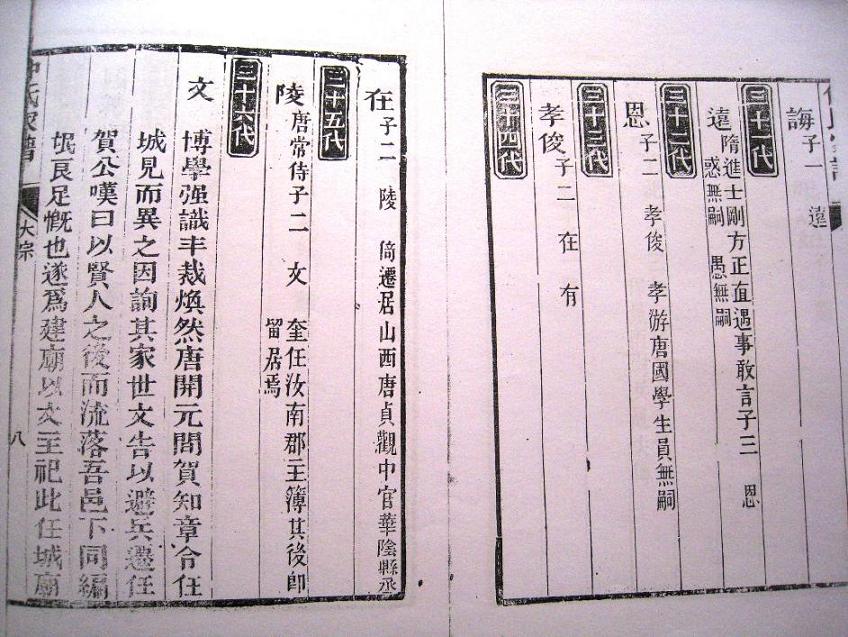 誨子一 遠
三十一代
遠隋進士剛方正直遇事敢言子三 恩
惑無嗣 愚無嗣
三十二代
恩子二 孝俊 孝游唐國學生員無嗣
三十三代
孝俊子二 在 有
三十四代
在子二 陵 倚遷居山西唐貞觀中官華陰縣丞
三十五代
陵唐常侍子二 文 奎任汝南郡主簿其後即
留居焉
三十六代
文 博學强識丰裁煥然唐開元間賀知章令任
城見而異之因詢其家世文告以避兵遷任
賀公嘆曰以賢人之後而流落吾邑下同編
氓良足慨也遂爲建廟以文主祀此任城廟
氏家譜 大宗 八